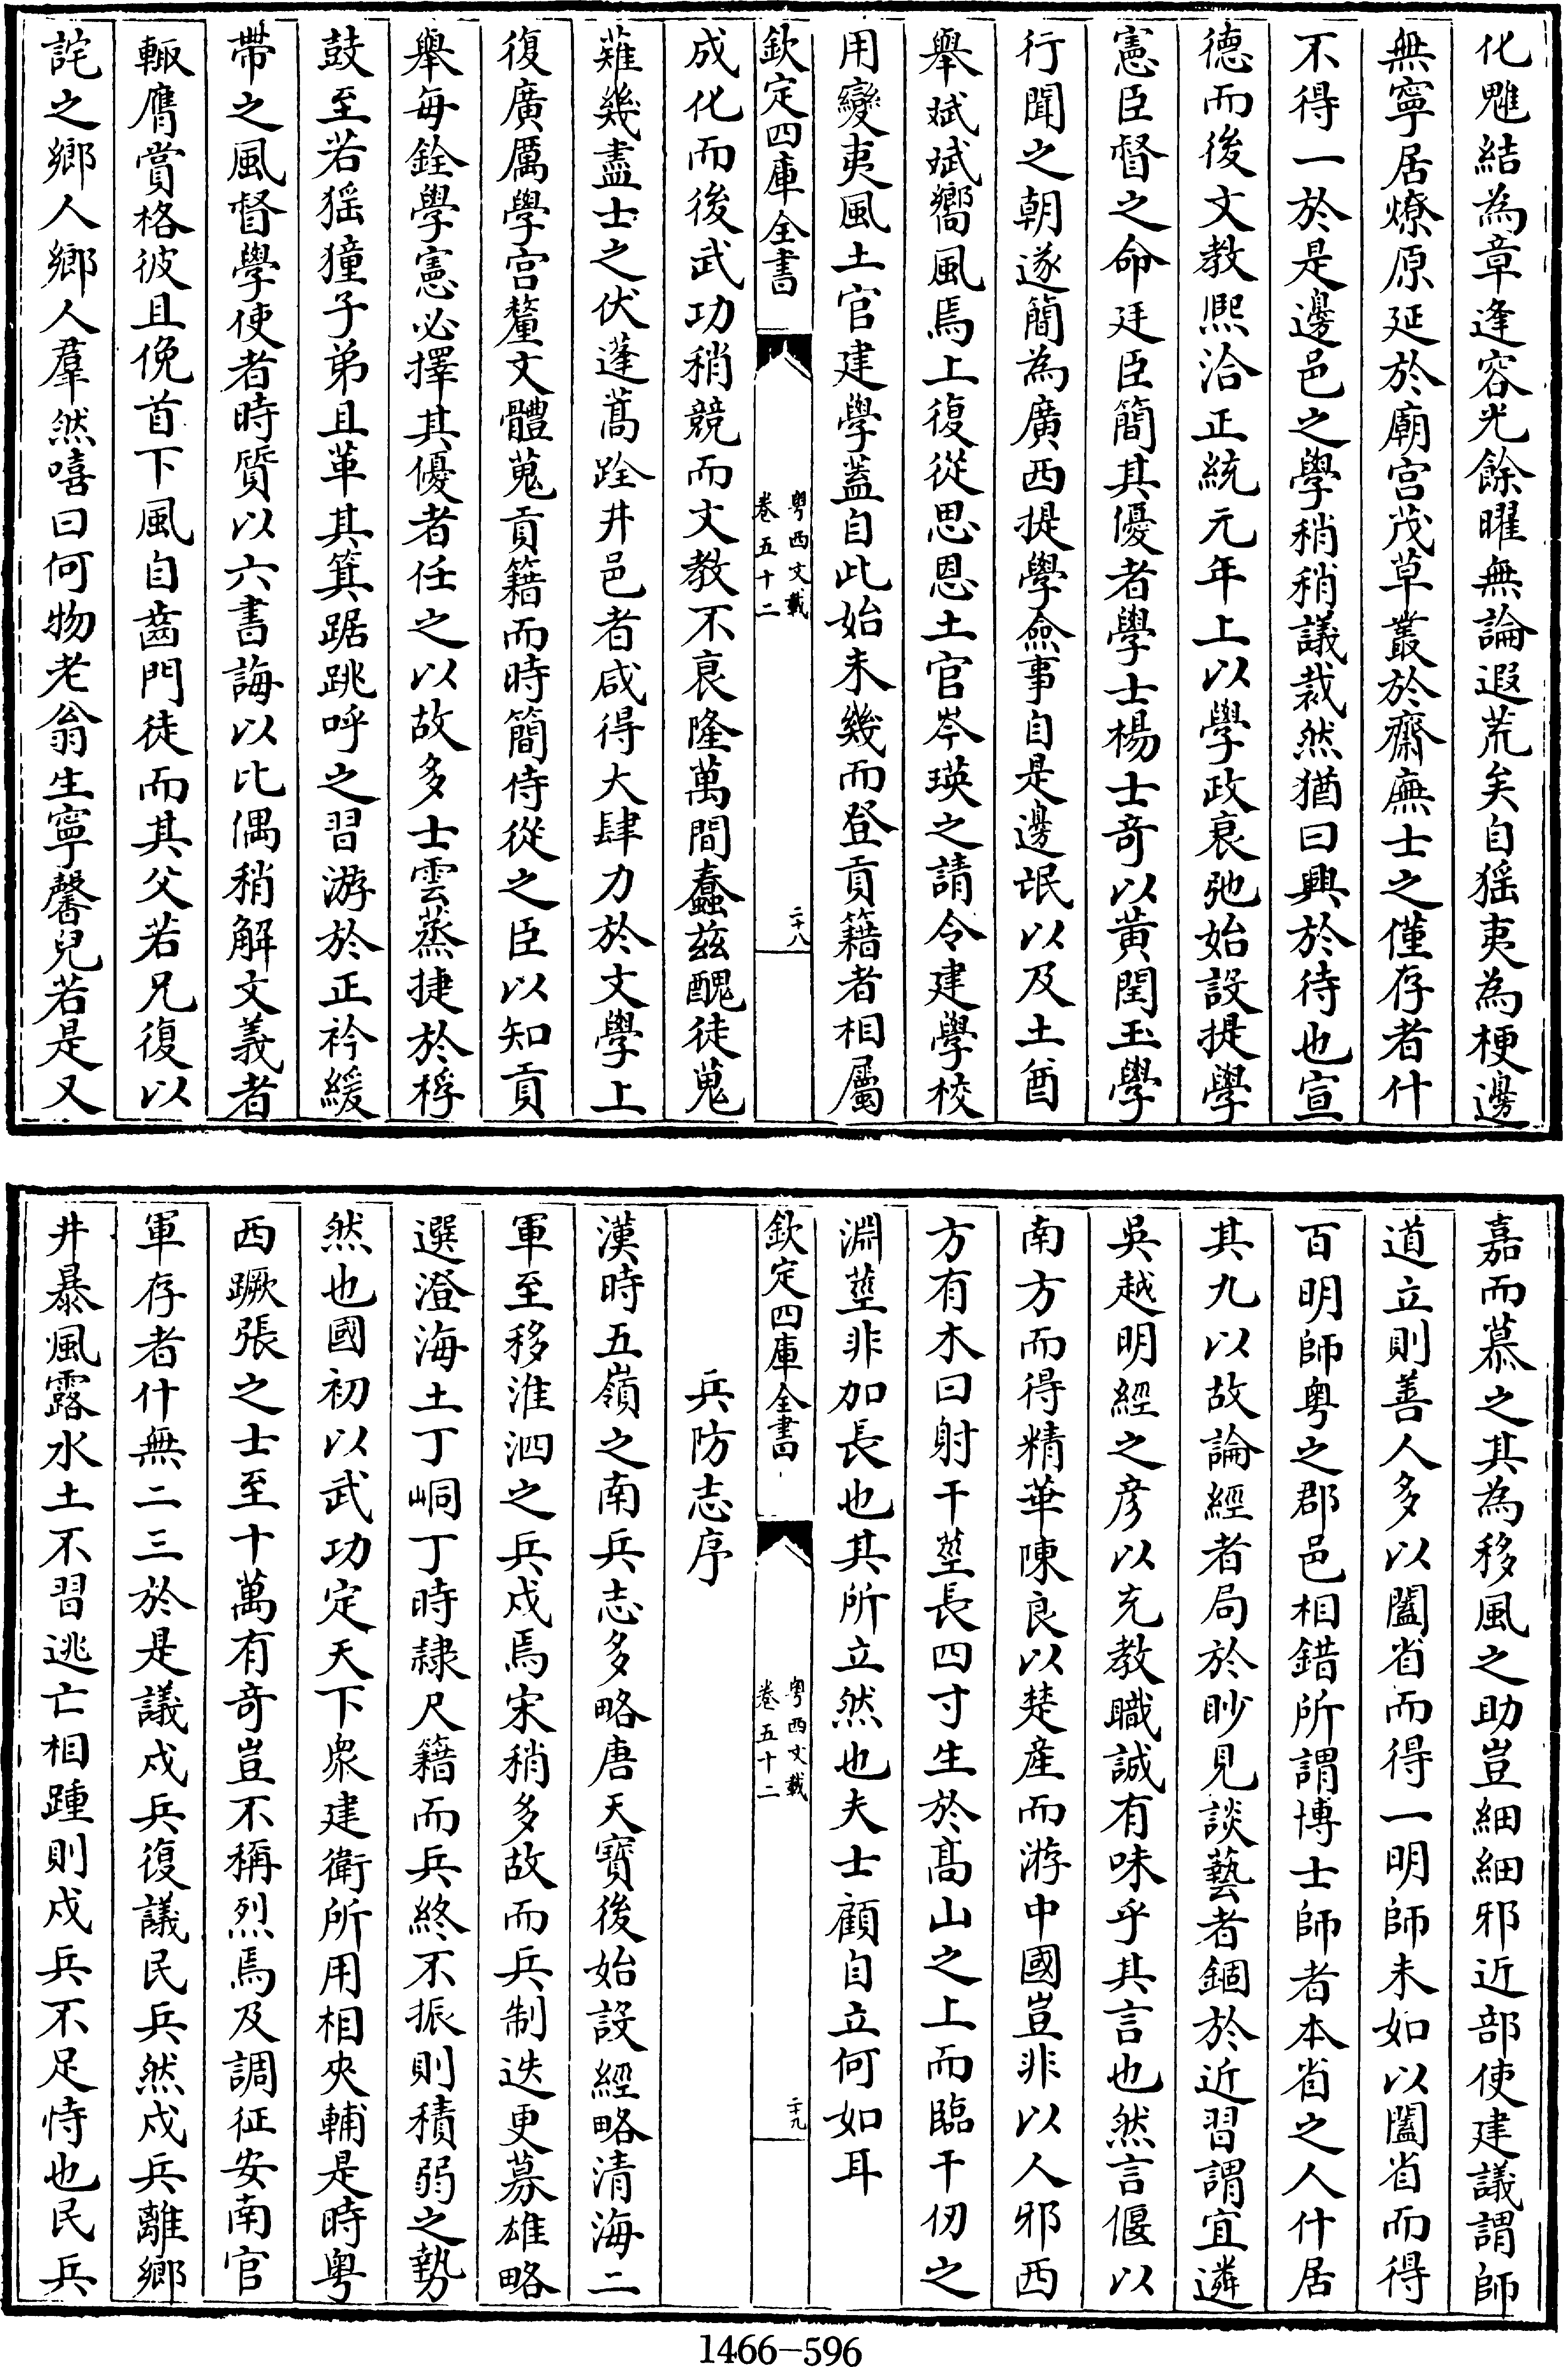 化魋結為章逢容光餘曜無論遐荒矣自猺夷為梗邊
無寧居燎原延於廟宮茂草叢於齋廡士之僅存者什
不得一於是邊邑之學稍稍議裁然猶曰興於待也宣
德而後文教熙洽正統元年上以學政衰弛始設提學
憲臣督之命廷臣簡其優者學士楊士奇以黃閏玉學
行聞之朝遂簡為廣西提學僉事自是邊氓以及土酋
舉斌斌嚮風焉上復從思恩土官岑瑛之請令建學校
用變夷風土官建學蓋自此始未幾而登貢籍者相屬
欽定四庫全書
粵西文載
卷五十二
二十八
成化而後武功稍競而文教不衰隆萬間蠢茲醜徒蒐
薙幾盡士之伏蓬蒿跧井邑者咸得大肆力於文學上
復廣厲學宮釐文體蒐貢籍而時簡侍從之臣以知貢
舉每銓學憲必擇其優者任之以故多士雲蒸捷於桴
鼓至若猺獞子弟且革其箕踞跳呼之習游於正衿緩
帶之風督學使者時質以六書誨以比偶稍解文義者
輒膺賞格彼且俛首下風自齒門徒而其父若兄復以
詫之鄉人鄉人羣然嘻曰何物老翁生寧馨兒若是又
嘉而慕之其為移風之助豈細細邪近部使建議謂師
道立則善人多以闔省而得一明師未如以闔省而得
百明師粵之郡邑相錯所謂博士師者本省之人什居
其九以故論經者局於眇見談藝者錮於近習謂宜遴
吳越明經之彥以充教職誠有味乎其言也然言偃以
南方而得精華陳良以楚產而游中國豈非以人邪西
方有木曰射干莖長四寸生於高山之上而臨千仞之
淵莖非加長也其所立然也夫士顧自立何如耳
欽定四庫全書
粵西文載
卷五十二
二十九
兵防志序
漢時五嶺之南兵志多略唐天寶後始設經略清海二
軍至移淮泗之兵戍焉宋稍多故而兵制迭更募雄略
選澄海土丁峒丁時隸尺籍而兵終不振則積弱之勢
然也國初以武功定天下眾建衛所用相夾輔是時粵
西蹶張之士至十萬有奇豈不稱烈焉及調征安南官
軍存者什無二三於是議戍兵復議民兵然戍兵離鄉
井暴風露水土不習逃亡相踵則戍兵不足恃也民兵
1466-596